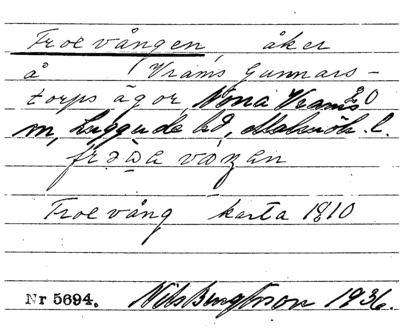 Froevången, åker
å Vrams Gunnars-
torps ägor, Norra Vrams
sn, Luggude hd, Malmöh. l.
Froevång karta 1810
Nr 5694. Nils Bengtsson 1936.